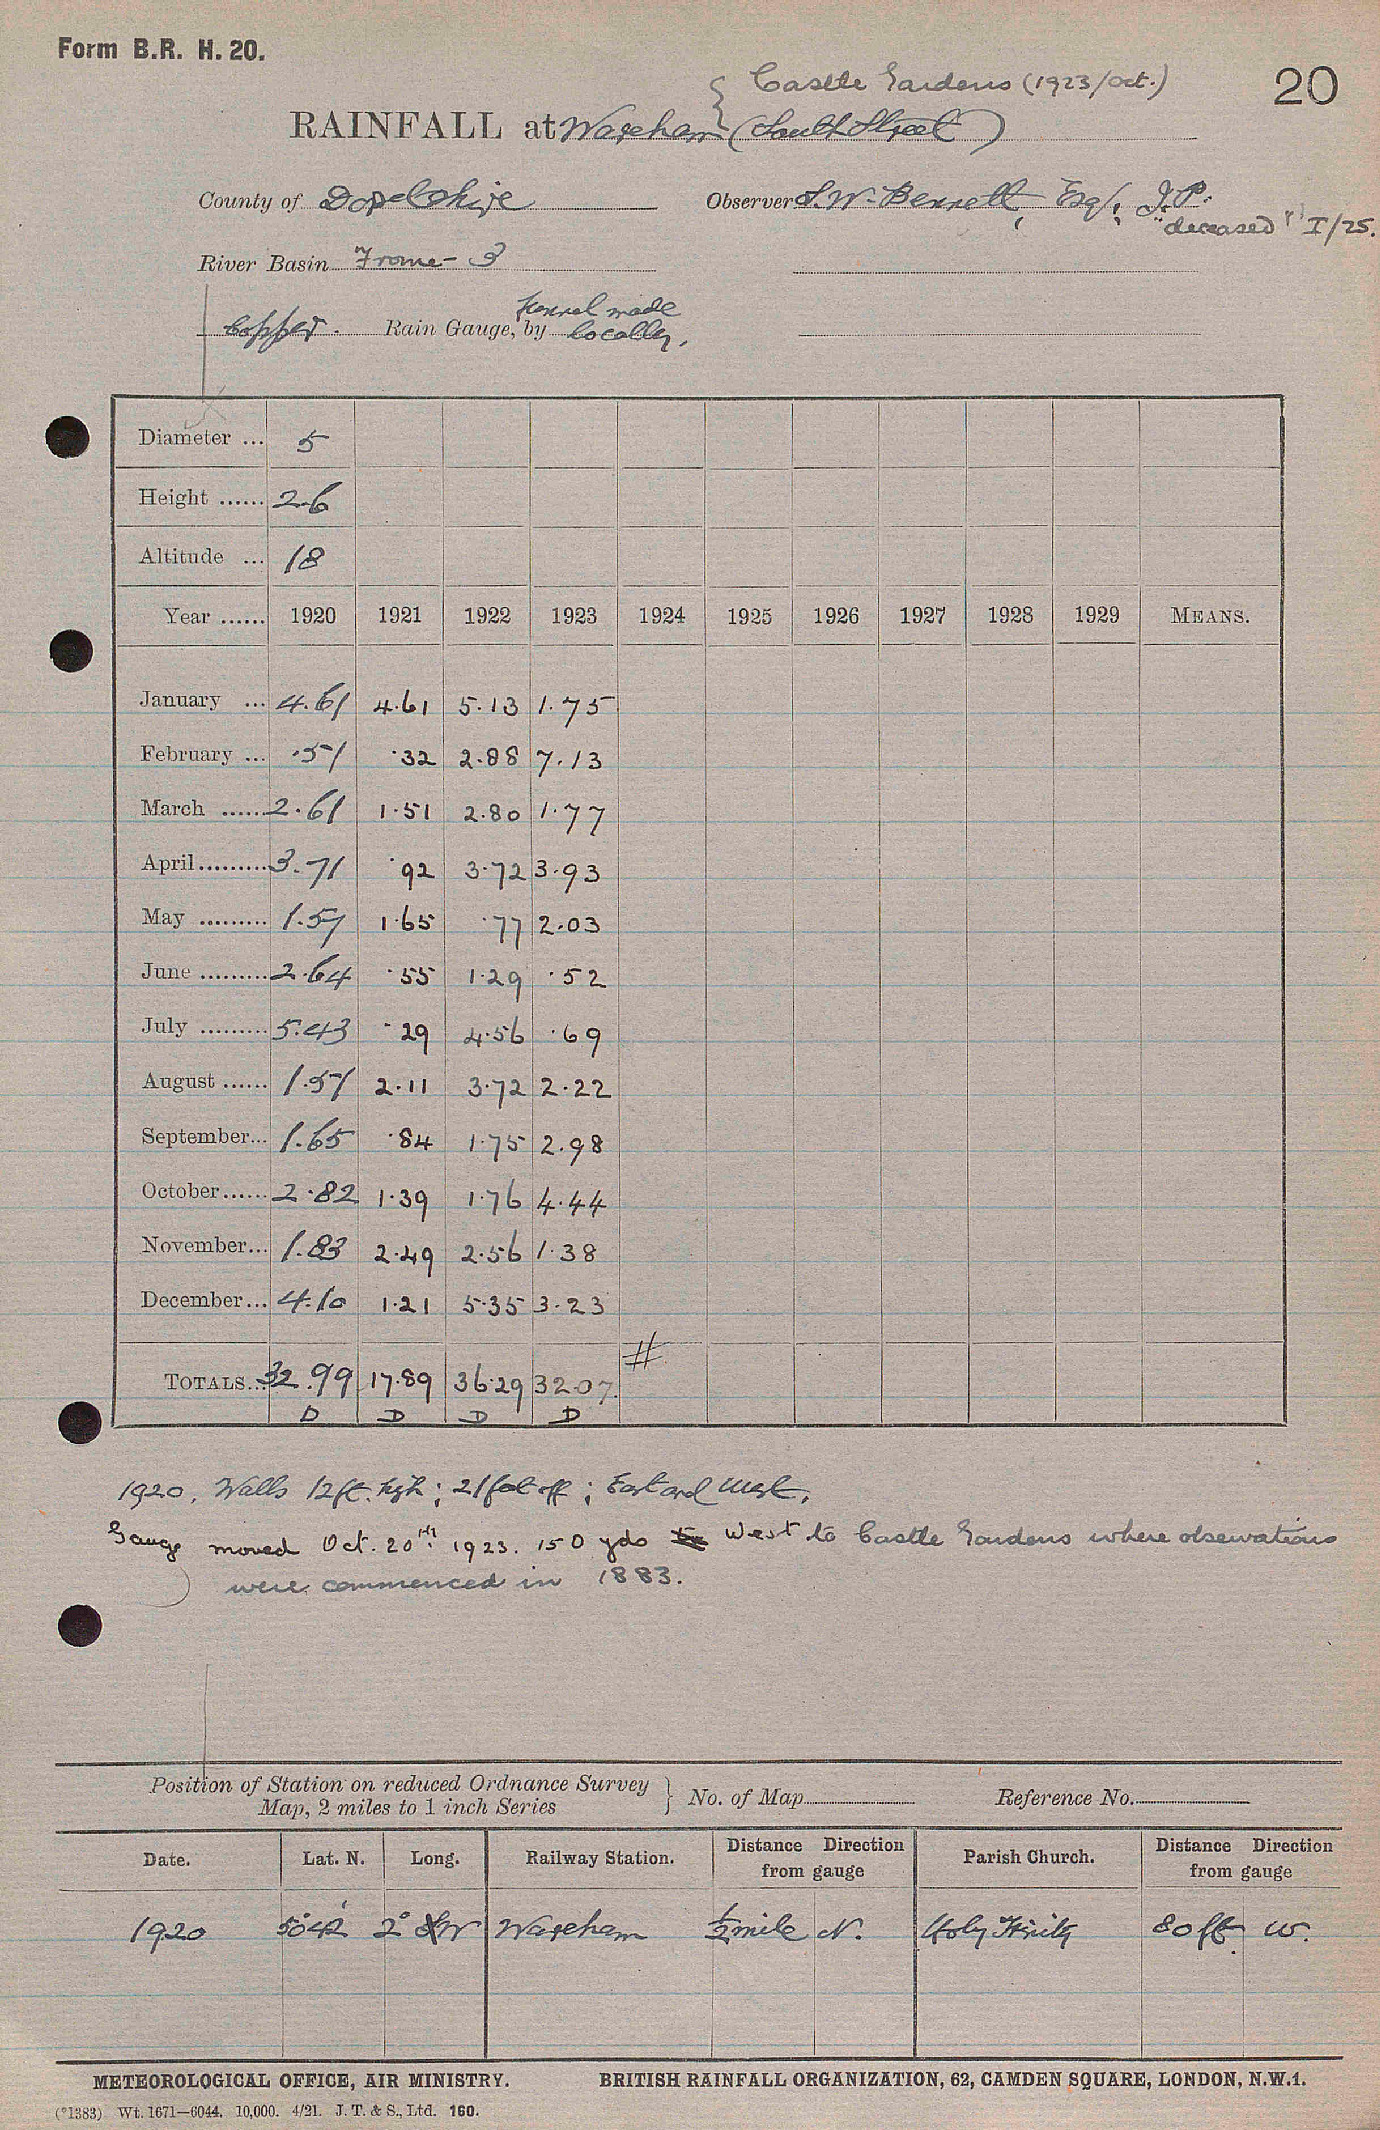 Form B.R. H. 20.
20
Castle Gardens (1923/Oct.)
RAINFALL at Wareham (South Street)
County of Dorsetshire Observer S. W. Bennett, Esq., J.P.
"deceased" I/25.
River Basin Frome - 3
Copper. Rain Gauge, by funnel made locally.
Diameter ... 5
Height ...... 2.6
Altitude ... 18
Year ...... 1920 1921 1922 1923 1924 1925 1926 1927 1928 1929 MEANS.
January ... 4.61 4.61 5.13 1.75
February ... .51 .32 2.88 7.13
March ...... 2.61 1.51 2.80 1.77
April ......... 3.71 .92 3.72 3.93
May ......... 1.57 1.65 .77 2.03
June ......... 2.64 .55 1.29 .52
July ......... 5.43 .29 4.56 .69
August ...... 1.51 2.11 3.72 2.22
September... 1.65 .84 1.75 2.98
October...... 2.82 1.39 1.76 4.44
November... 1.83 2.49 2.56 1.38
December... 4.10 1.21 5.35 3.23
#
TOTALS... 32.99 17.89 36.29 32.07
D D D D
1920. Walls 12ft. high; 21 feet off; East and West.
Gauge moved Oct. 20th 1923. 150 yds West to Castle Gardens where observations
were commenced in 1883.
Position of Station on reduced Ordnance Survey
Map, 2 miles to 1 inch Series } No. of Map Reference No.
Date. Lat. N. Long. Railway Station. Distance Direction from gauge Parish Church. Distance Direction from gauge
1920 50° 42' 2° W Wareham ½ mile N. Holy Trinity 80 ft. W.
METEOROLOGICAL OFFICE, AIR MINISTRY. BRITISH RAINFALL ORGANIZATION, 62, CAMDEN SQUARE, LONDON, N.W.1.
(*1383) Wt. 1671—6044. 10,000. 4/21. J. T. & S., Ltd. 160.